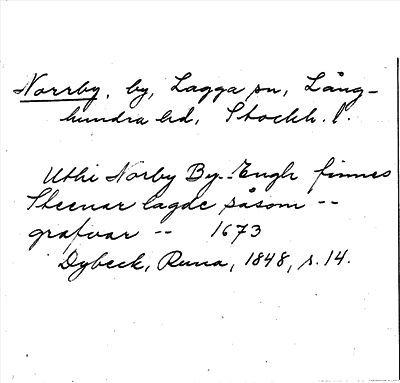 Norrby, by, Lagga sn, Lång-
hundra hd, Stockh. l.
Uthi Norby By--Engh finnes
Steenar lagde såsom --
grafvar -- 1673
Dybeck, Runa, 1848, s. 14.